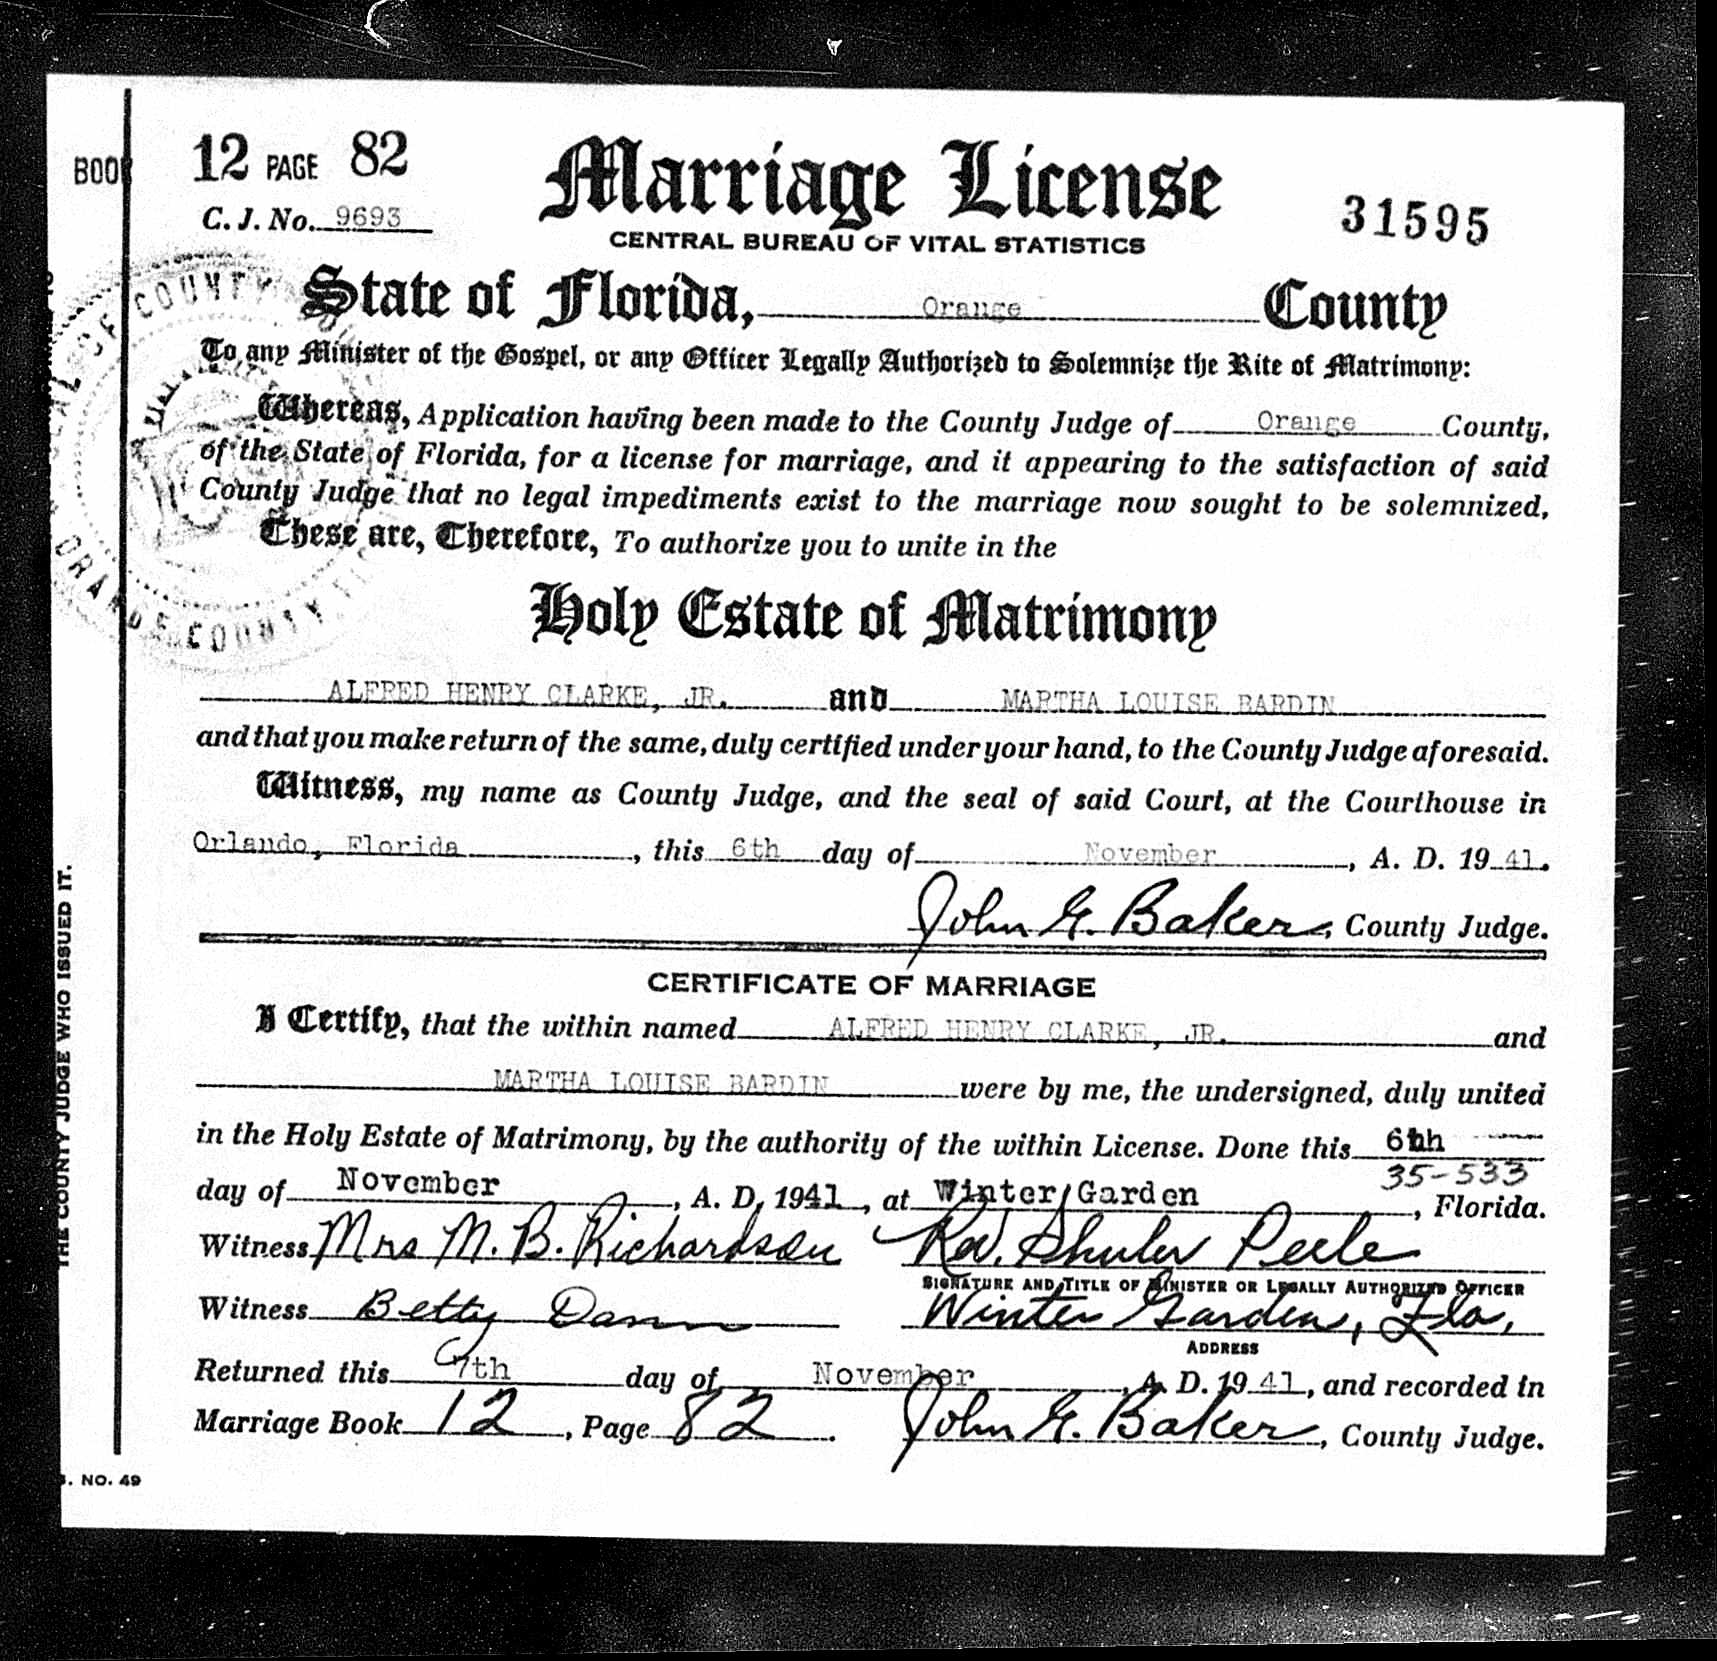 BOOK 12 PAGE 82
Marriage License
C. J. No. 9693
31595
CENTRAL BUREAU OF VITAL STATISTICS
State of Florida, Orange County
To any Minister of the Gospel, or any Officer Legally Authorized to Solemnize the Rite of Matrimony:
Whereas, Application having been made to the County Judge of Orange County,
of the State of Florida, for a license for marriage, and it appearing to the satisfaction of said
County Judge that no legal impediments exist to the marriage now sought to be solemnized,
These are, Therefore, To authorize you to unite in the
Holy Estate of Matrimony
ALFRED HENRY CLARKE, JR. and MARTHA LOUISE BARDIN
and that you make return of the same, duly certified under your hand, to the County Judge aforesaid.
Witness, my name as County Judge, and the seal of said Court, at the Courthouse in
Orlando, Florida, this 6th day of November, A. D. 19 41.
John G. Baker, County Judge.
CERTIFICATE OF MARRIAGE
I Certify, that the within named ALFRED HENRY CLARKE, JR. and
MARTHA LOUISE BARDIN were by me, the undersigned, duly united
in the Holy Estate of Matrimony, by the authority of the within License. Done this 6th
35-533
day of November, A. D. 1941, at Winter Garden, Florida.
Witness Mrs M. B. Richardson Rev. Shuler Peele
SIGNATURE AND TITLE OF MINISTER OR LEGALLY AUTHORIZED OFFICER
Witness Betty Dann Winter Garden, Fla,
ADDRESS
Returned this 7th day of November A. D. 19 41, and recorded in
Marriage Book 12, Page 82. John G. Baker, County Judge.
. NO. 49
THE COUNTY JUDGE WHO ISSUED IT.
SEAL OF COUNTY
ORANGE COUNTY